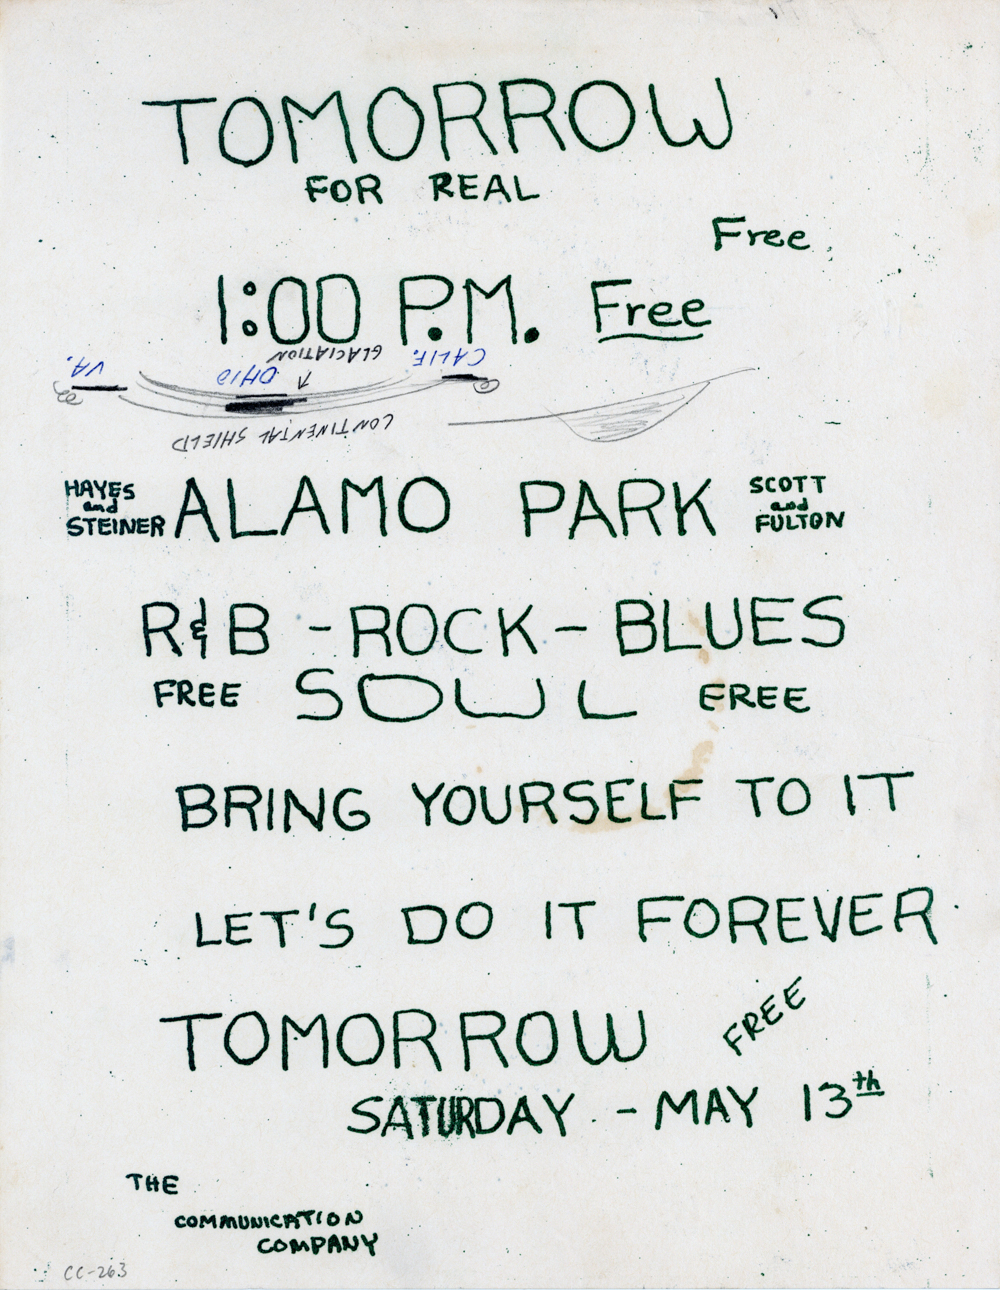 TOMORROW
FOR REAL
Free
1:00 P.M. Free
GLACIATION
CALIF.
VA.
OHIO
CONTINENTAL SHIELD
HAYES and STEINER ALAMO PARK SCOTT and FULTON
R&B - ROCK - BLUES
FREE SOUL FREE
BRING YOURSELF TO IT
LET'S DO IT FOREVER
TOMORROW FREE
SATURDAY - MAY 13th
THE
COMMUNICATION
COMPANY
CC-263